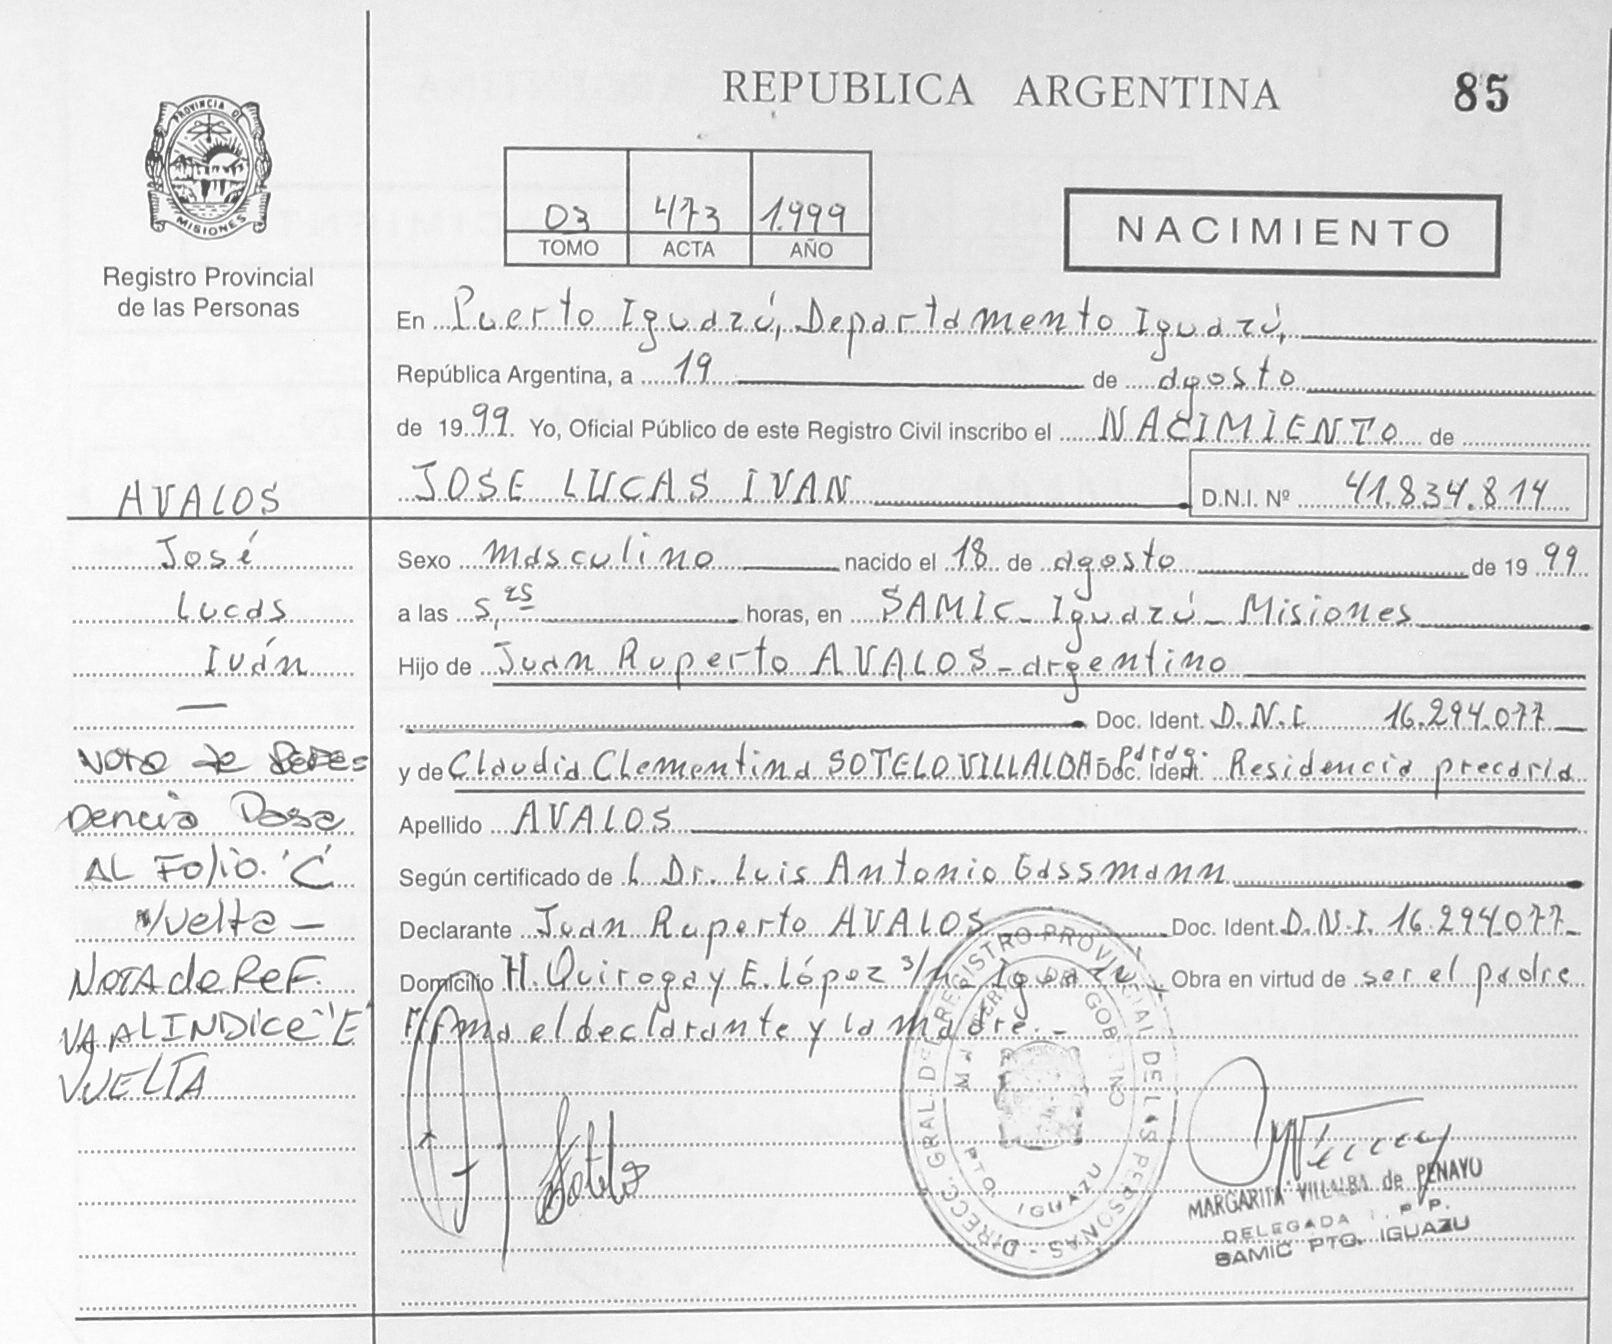 REPUBLICA ARGENTINA
85
PROVINCIA D
MISIONES
Registro Provincial
de las Personas
03 473 1.999
TOMO ACTA AÑO
NACIMIENTO
En Puerto Iguazú, Departamento Iguazú,
República Argentina, a 19 de agosto
de 1999. Yo, Oficial Público de este Registro Civil inscribo el NACIMIENTO de
JOSE LUCAS IVAN D.N.I. Nº 41.834.814
AVALOS
José
Lucas
Iván
—
Nota de
dencia Pasa
AL Folio. "C"
Vuelta —
NOTA de REF.
VA AL INDICE "E"
VUELTA
Sexo masculino nacido el 18 de agosto de 1999
a las 5,25 horas, en SAMIC - Iguazú - Misiones
Hijo de Juan Ruperto AVALOS - argentino
Doc. Ident. D.N.I. 16.294.077
y de Claudia Clementina SOTELO VILLALBA - parag. Doc. Ident. Residencia precaria
Apellido AVALOS
Según certificado de l Dr. Luis Antonio Gassmann
Declarante Juan Ruperto AVALOS Doc. Ident. D.N.I. 16.294.077
Domicilio H. Quiroga y E. López s/n Iguazú Obra en virtud de ser el padre
Firma el declarante y la madre. -
DIRECC. GRAL. DEL REGISTRO PROVINCIAL DE LAS PERSONAS
PTO. IGUAZU
Sotelo
MARGARITA VILLALBA de PENAYO
DELEGADA
SAMIC PTO. IGUAZU